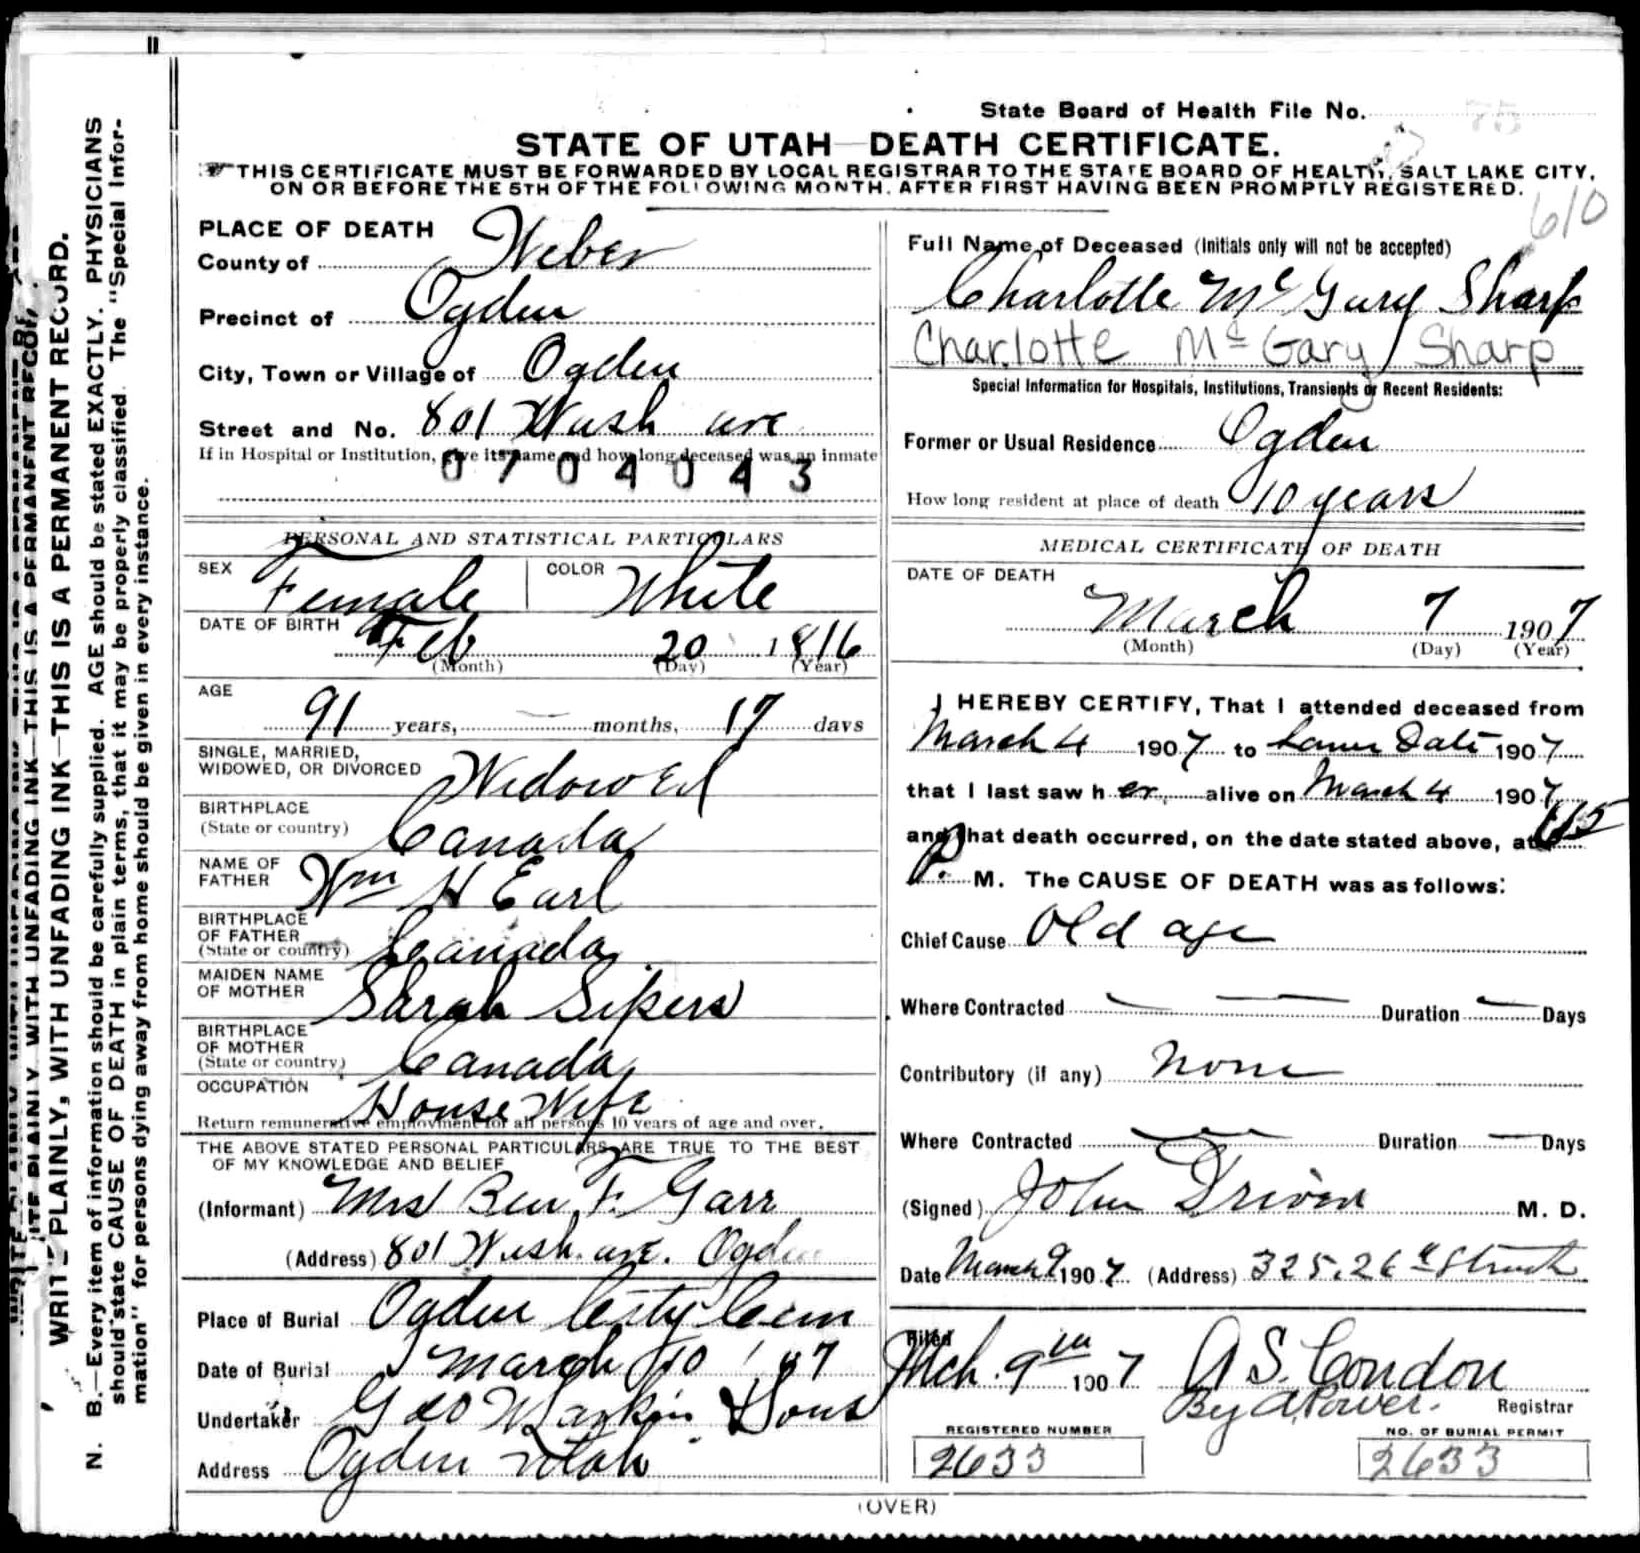 State Board of Health File No.
STATE OF UTAH—DEATH CERTIFICATE.
THIS CERTIFICATE MUST BE FORWARDED BY LOCAL REGISTRAR TO THE STATE BOARD OF HEALTH, SALT LAKE CITY,
ON OR BEFORE THE 5TH OF THE FOLLOWING MONTH, AFTER FIRST HAVING BEEN PROMPTLY REGISTERED.
610
PLACE OF DEATH
County of Weber
Precinct of Ogden
City, Town or Village of Ogden
Street and No. 801 Wash ave
If in Hospital or Institution, give its name and how long deceased was an inmate
0704043
PERSONAL AND STATISTICAL PARTICULARS
SEX Female COLOR White
DATE OF BIRTH Feb 20 1816
(Month) (Day) (Year)
AGE 91 years, — months, 17 days
SINGLE, MARRIED,
WIDOWED, OR DIVORCED Widowed
BIRTHPLACE
(State or country) Canada
NAME OF
FATHER Wm H Earl
BIRTHPLACE
OF FATHER
(State or country) Canada
MAIDEN NAME
OF MOTHER Sarah Sipers
BIRTHPLACE
OF MOTHER
(State or country) Canada
OCCUPATION House Wife
Return remunerative employment for all persons 10 years of age and over.
THE ABOVE STATED PERSONAL PARTICULARS ARE TRUE TO THE BEST
OF MY KNOWLEDGE AND BELIEF
(Informant) Mrs Ben F. Garr
(Address) 801 Wash. ave. Ogden
Place of Burial Ogden City Cem
Date of Burial March 10 '07
Undertaker Geo W Larkin & Sons
Address Ogden Utah
Full Name of Deceased (Initials only will not be accepted)
Charlotte McGary Sharp
Charlotte McGary Sharp
Special Information for Hospitals, Institutions, Transients or Recent Residents:
Former or Usual Residence Ogden
How long resident at place of death 10 years
MEDICAL CERTIFICATE OF DEATH
DATE OF DEATH
March 7 1907
(Month) (Day) (Year)
I HEREBY CERTIFY, That I attended deceased from
March 4 1907 to Same Date 1907
that I last saw her alive on March 4 1907
and that death occurred, on the date stated above, at
P. M. The CAUSE OF DEATH was as follows:
Chief Cause Old age
Where Contracted — — Duration — Days
Contributory (if any) None
Where Contracted — — Duration — Days
(Signed) John Driver M. D.
Date March 9 1907 (Address) 325. 26th Street
Filed
Mch. 9th 1907 A S. Condon
By A. Power. Registrar
REGISTERED NUMBER
2633
NO. OF BURIAL PERMIT
2633
(OVER)
WRITE PLAINLY, WITH UNFADING INK—THIS IS A PERMANENT RECORD.
N. B.—Every item of information should be carefully supplied. AGE should be stated EXACTLY. PHYSICIANS
should state CAUSE OF DEATH in plain terms, that it may be properly classified. The "Special Infor-
mation" for persons dying away from home should be given in every instance.